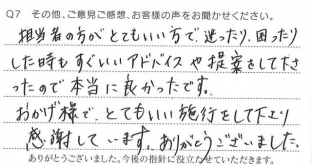 Q7 その他、ご意見ご感想、お客様の声をお聞かせください。
担当者の方がとてもいい方で迷ったり、困ったり
した時もすぐいいアドバイスや提案をして下さ
ったので本当に良かったです。
おかげ様で、とてもいい施行をして下さり
感謝しています。ありがとうございました。
ありがとうございました。今後の指針に役立たせていただきます。